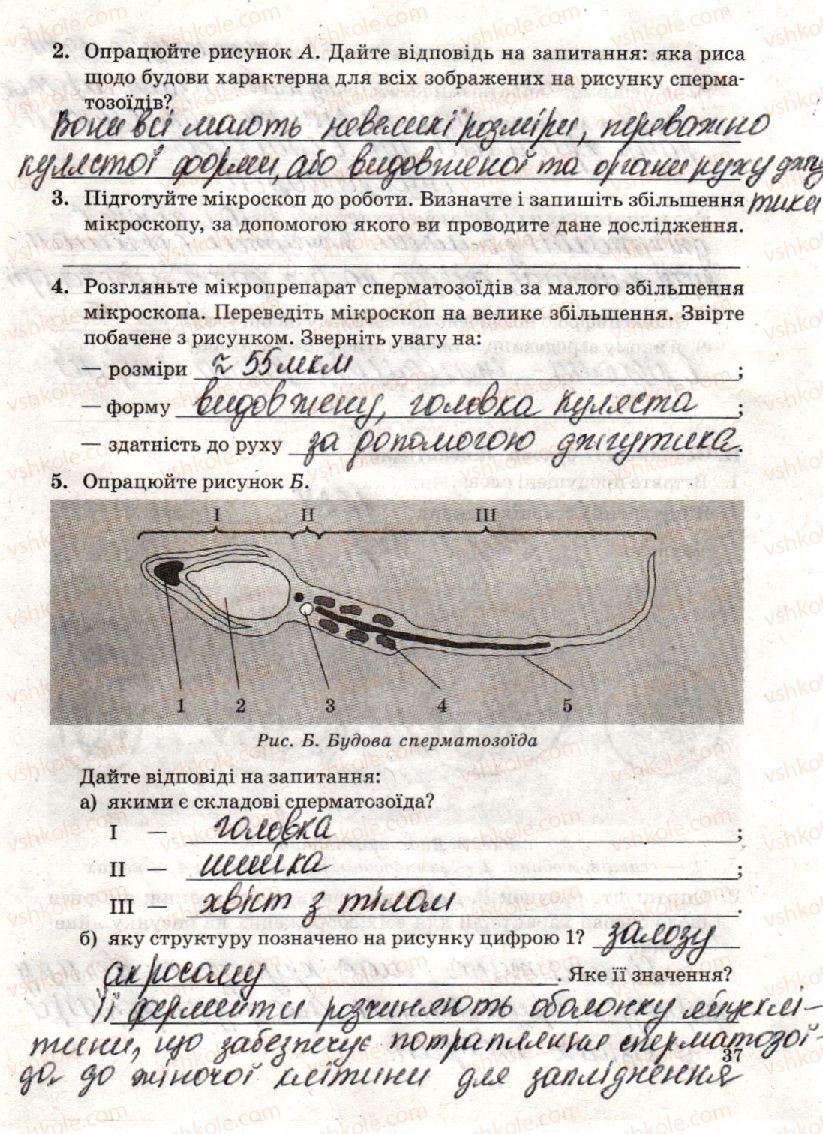 2. Опрацюйте рисунок А. Дайте відповідь на запитання: яка риса
щодо будови характерна для всіх зображених на рисунку сперма-
тозоїдів?
Вони всі мають невеликі розміри, переважно
кулястої форми, або видовженої та органи руху джгу
тика
3. Підготуйте мікроскоп до роботи. Визначте і запишіть збільшення
мікроскопу, за допомогою якого ви проводите дане дослідження.
4. Розгляньте мікропрепарат сперматозоїдів за малого збільшення
мікроскопа. Переведіть мікроскоп на велике збільшення. Звірте
побачене з рисунком. Зверніть увагу на:
— розміри ≈ 55 мкм ;
— форму видовжену, головка куляста ;
— здатність до руху за допомогою джгутика.
5. Опрацюйте рисунок Б.
I II III
1 2 3 4 5
Рис. Б. Будова сперматозоїда
Дайте відповіді на запитання:
а) якими є складові сперматозоїда?
I — головка ;
II — шийка ;
III — хвіст з тілом .
б) яку структуру позначено на рисунку цифрою 1? залозу
акросому . Яке її значення?
Її ферменти розчиняють оболонку яйцеклі-
тини, що забезпечує потрапляння сперматозої-
да до жіночої клітини для запліднення
37
vshkole.com